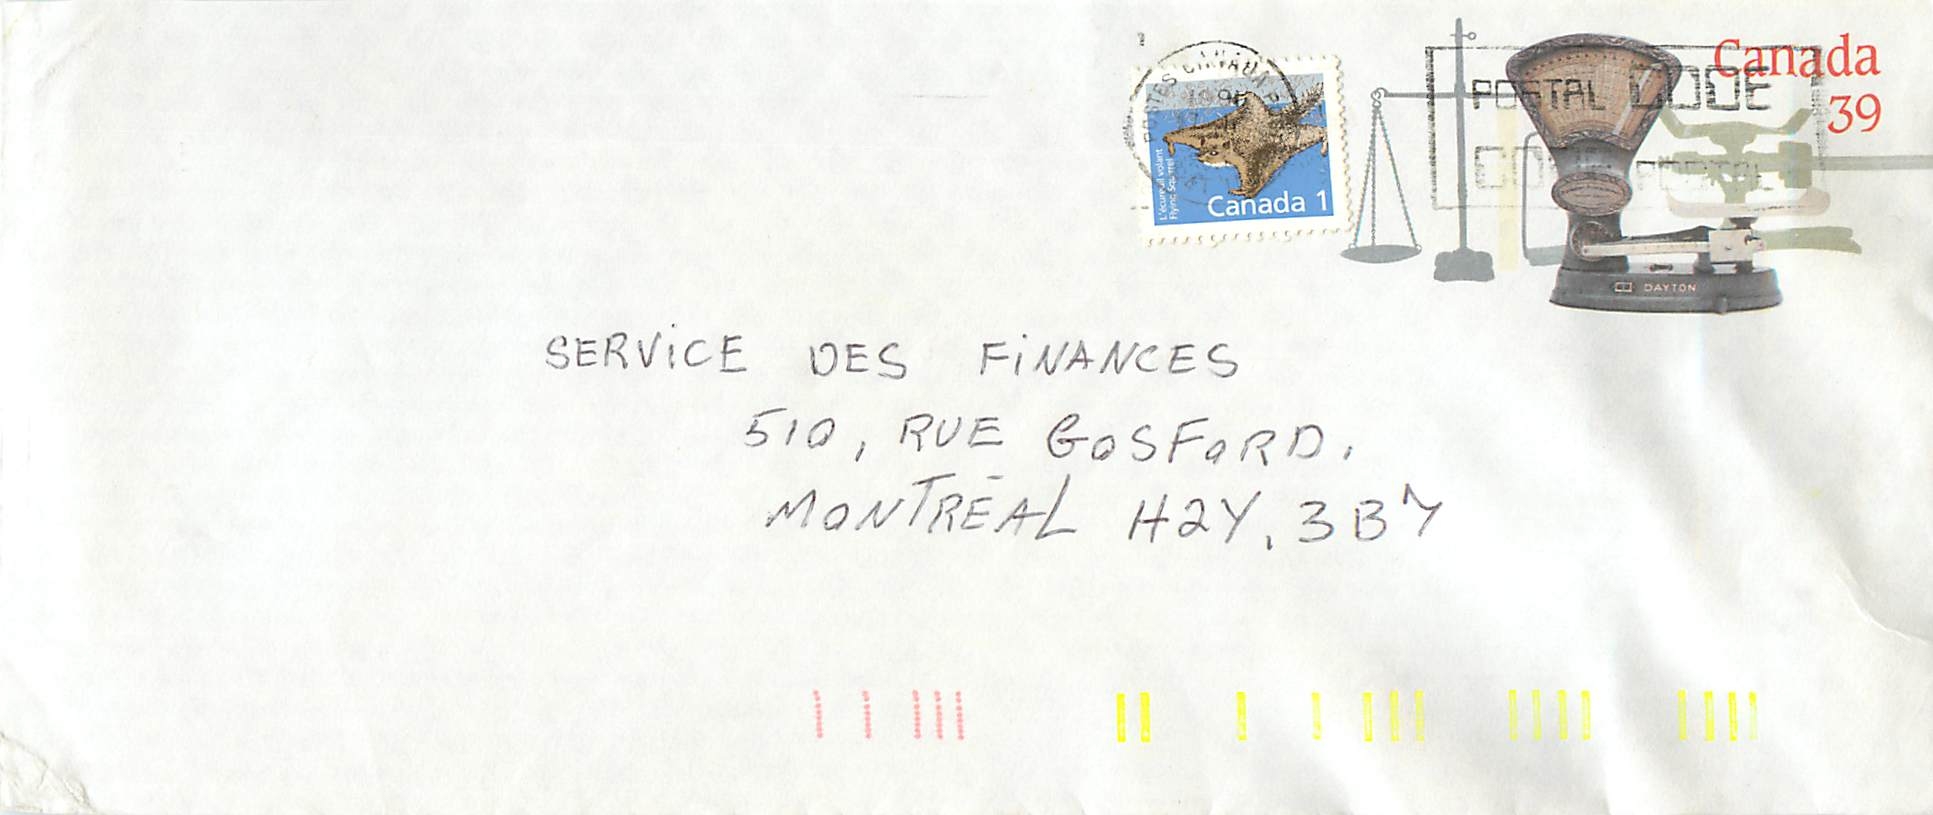 Canada
39
POSTAL CODE
CODE POSTAL
POSTES CANADA
L'écureuil volant
Flying Squirrel
Canada 1
DAYTON
SERVICE DES FINANCES
510, RUE GOSFORD.
MONTRÉAL H2Y, 3B7